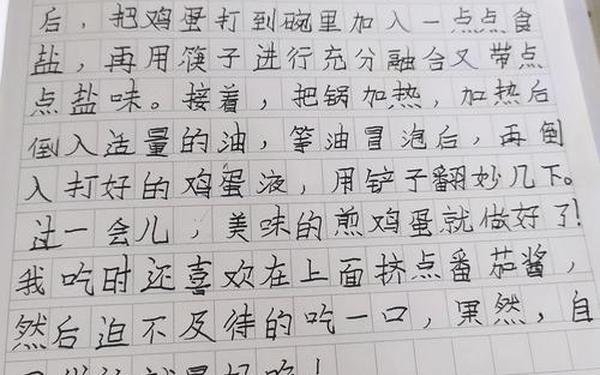 后，把鸡蛋打到碗里加入一点点食
盐，再用筷子进行充分融合又带点
点盐味。接着，把锅加热，加热后
倒入适量的油，等油冒泡后，再倒
入打好的鸡蛋液，用铲子翻妙几下。
过一会儿，美味的煎鸡蛋就做好了！
我吃时还喜欢在上面挤点番茄酱，
然后迫不及待的吃一口，果然，自